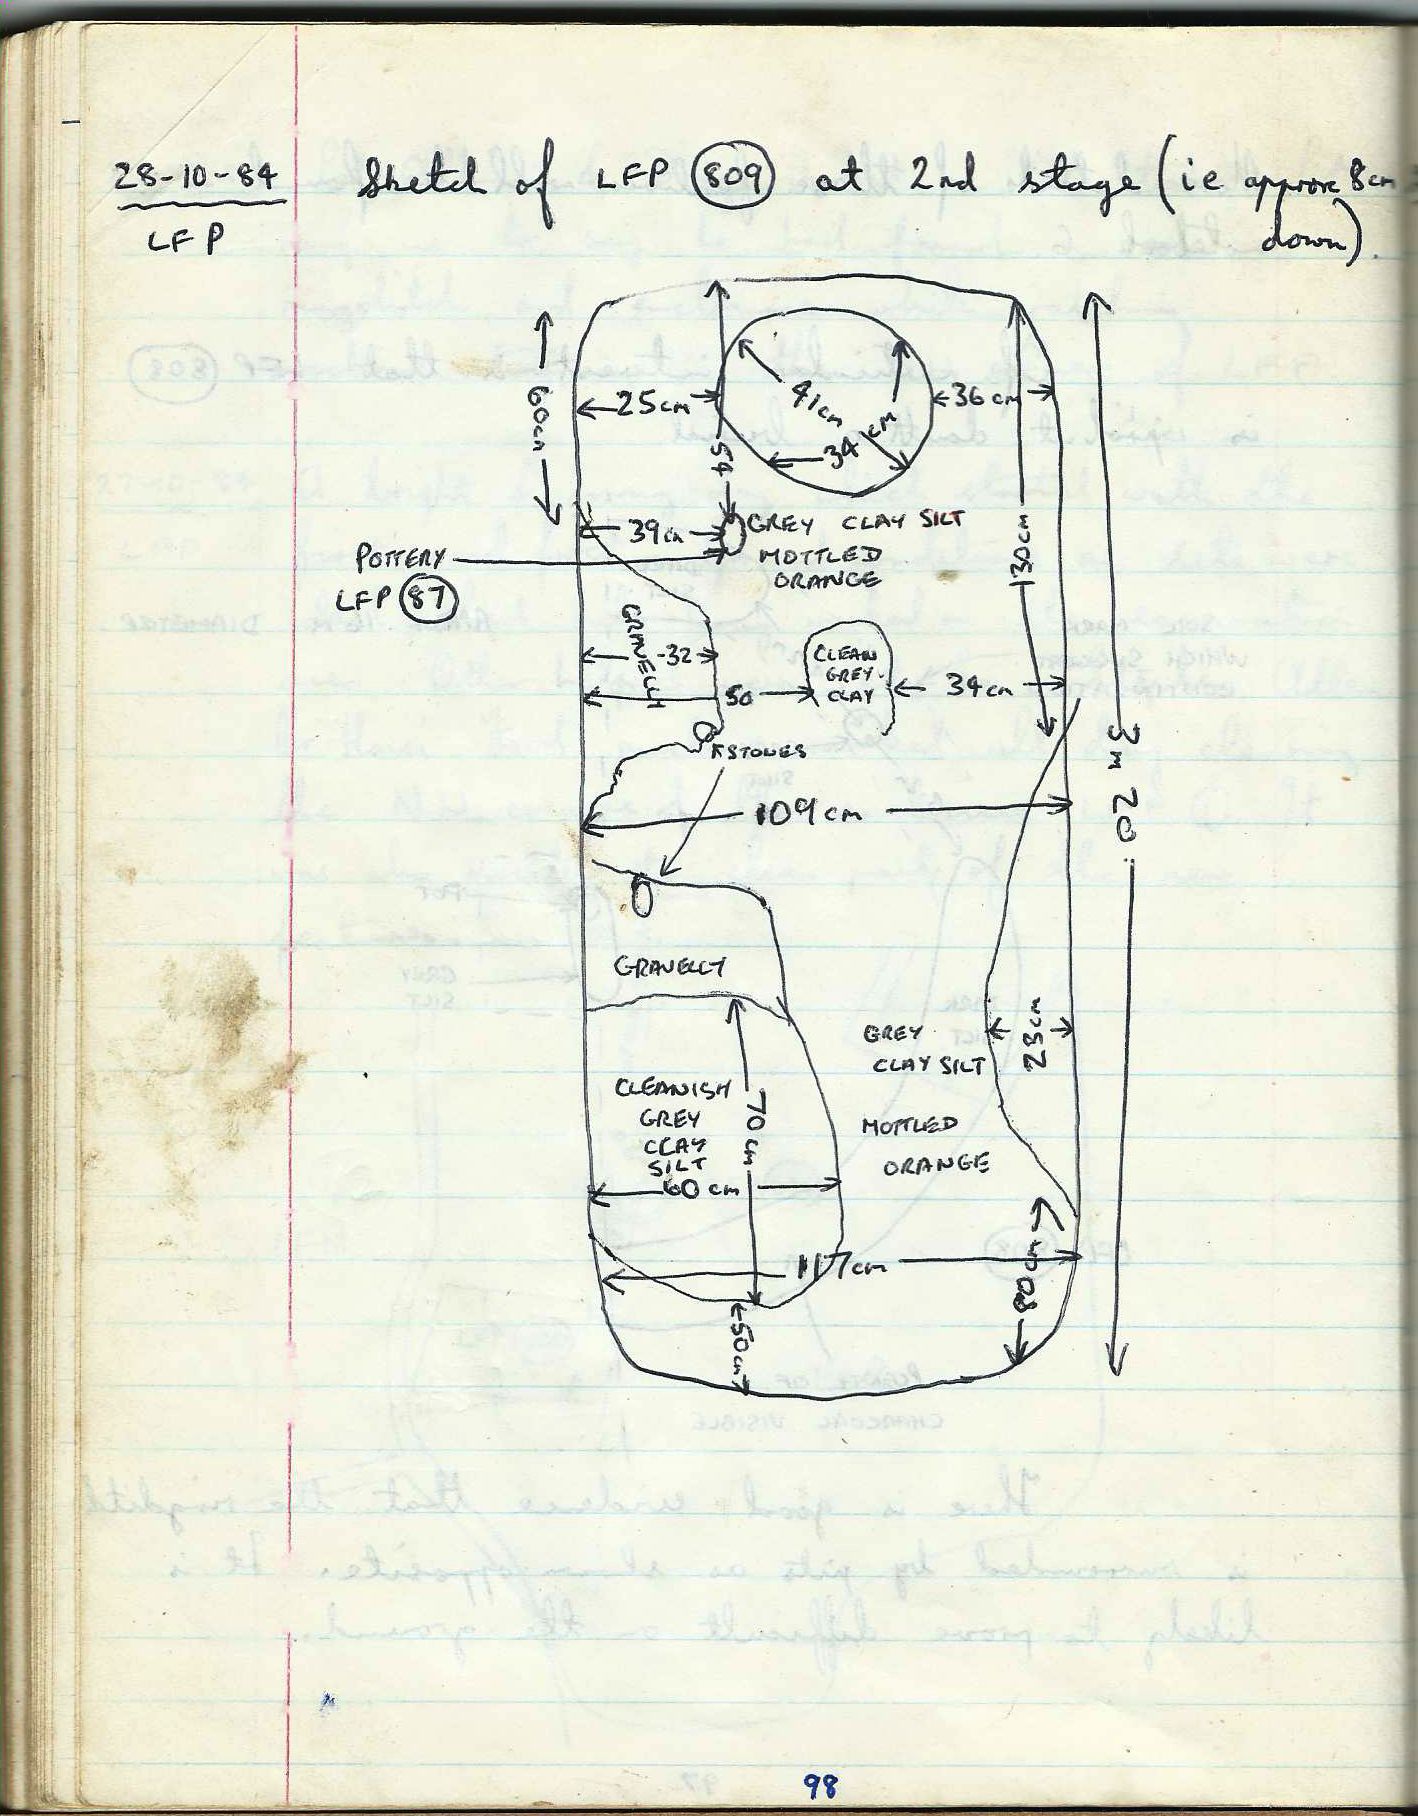 28-10-84 Sketch of LFP 809 at 2nd stage (ie approx 8cm
LFP down).
60cm
25cm
54
41cm
34cm
36cm
39cm
GREY CLAY SILT
MOTTLED
ORANGE
POTTERY
LFP 87
130cm
GRAVELLY
32
50
CLEAN
GREY
CLAY
34cm
STONES
109cm
3m 20
GRAVELLY
GREY
CLAY SILT
23cm
CLEANISH
GREY
CLAY
SILT
70cm
MOTTLED
ORANGE
60cm
117cm
80cm
50cm
98